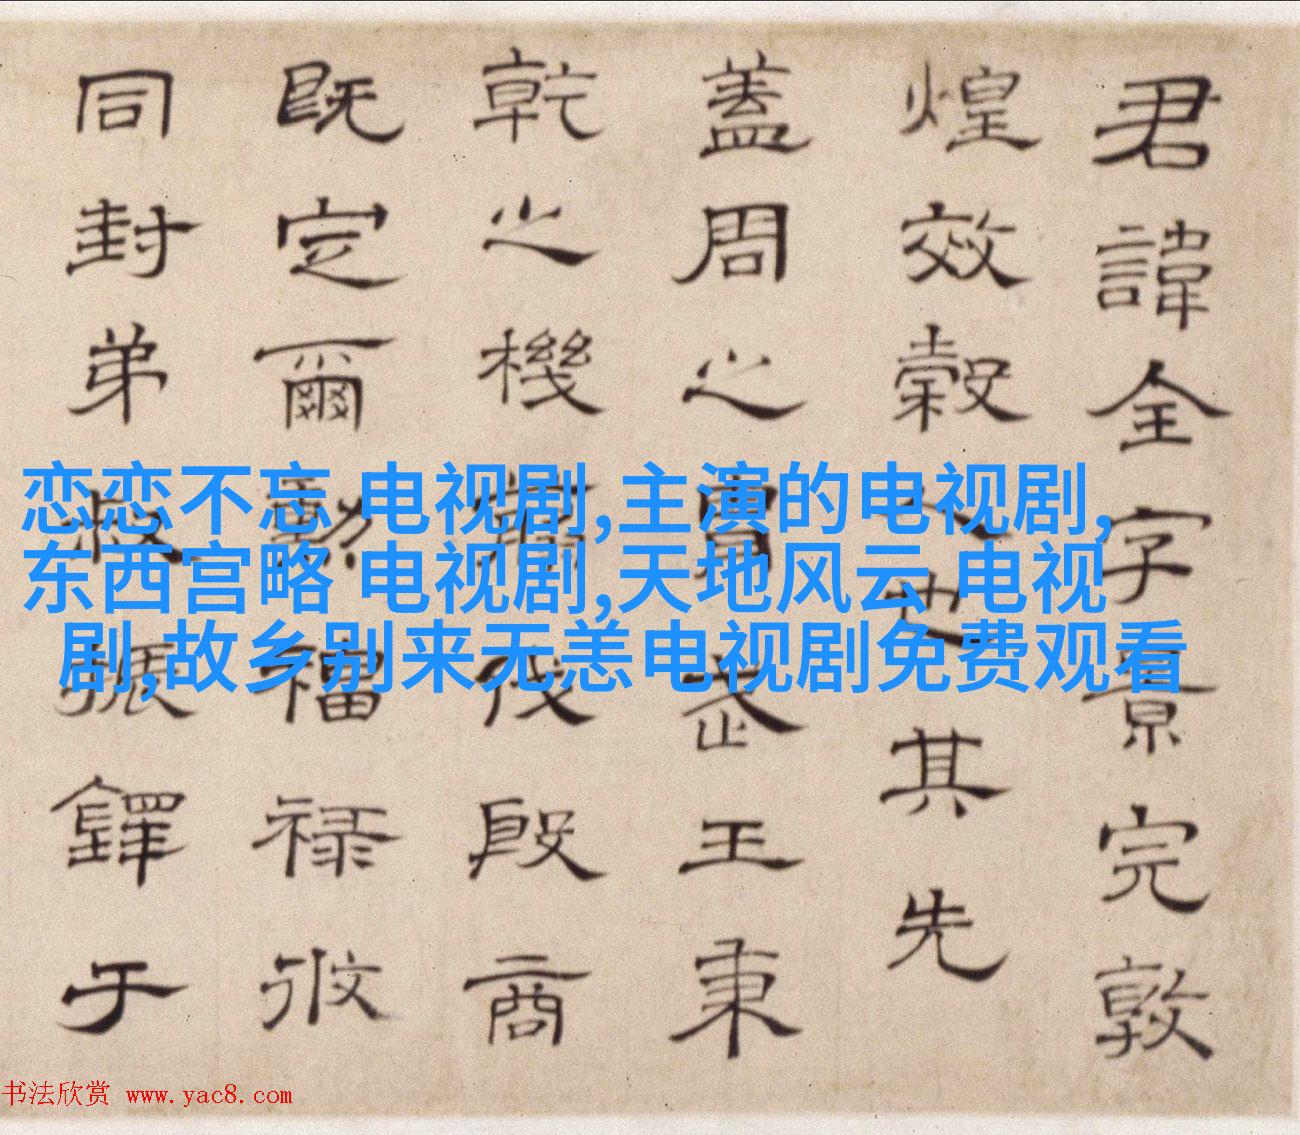 君諱全字景完敦
煌效穀人也其先
蓋周之胄武王秉
乾之機伐殷商
既定爾勳福祿攸
同封弟叔振鐸于
恋恋不忘 电视剧,主演的电视剧,
东西宫略 电视剧,天地风云 电视
剧,故乡别来无恙电视剧免费观看
书法欣赏 www.yac8.com